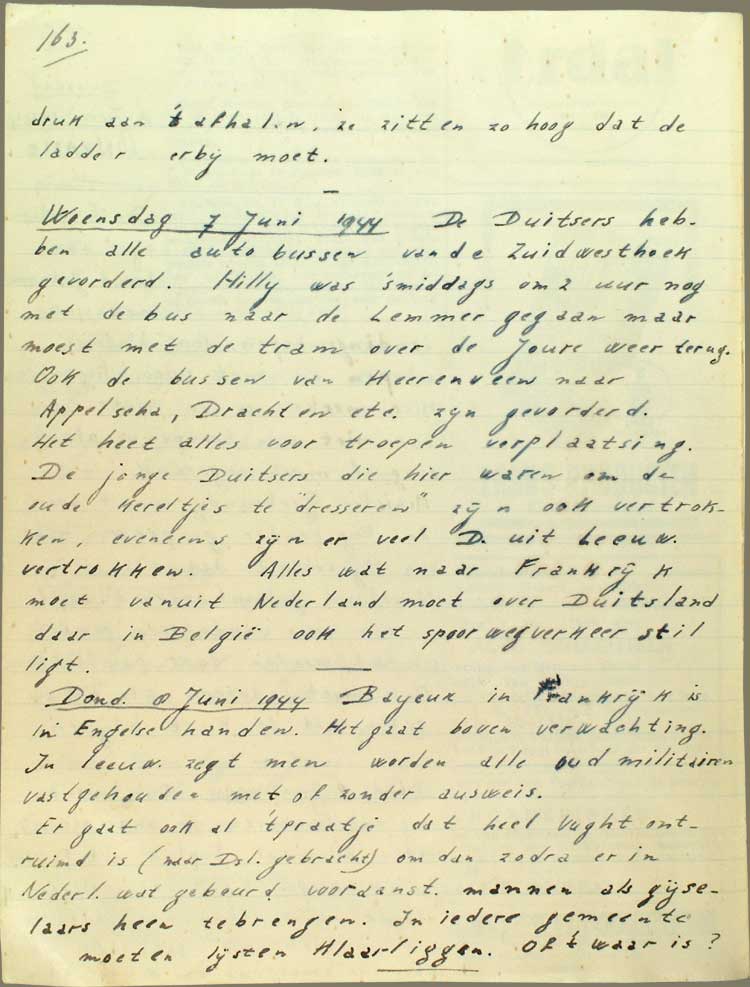 163.
druk aan 't afhalen, ze zitten zo hoog dat de
ladder erbij moet.
Woensdag 7 Juni 1944 De Duitsers heb-
ben alle auto bussen van de Zuidwesthoek
gevorderd. Hilly was 'smiddags om 2 uur nog
met de bus naar de Lemmer gegaan maar
moest met de tram over de Joure weer terug.
Ook de bussen van Heerenveen naar
Appelscha, Drachten etc. zijn gevorderd.
Het heet alles voor troepen verplaatsing.
De jonge Duitsers die hier waren om de
oude kereltjes te "dresseren" zijn ook vertrok-
ken, eveneens zijn er veel D. uit Leeuw.
vertrokken. Alles wat naar Frankrijk
moet vanuit Nederland moet over Duitsland
daar in België ook het spoorwegverkeer stil
ligt.
Dond. 8 Juni 1944 Bayeux in Frankrijk is
in Engelse handen. Het gaat boven verwachting.
In Leeuw. zegt men worden alle oud militairen
vastgehouden met of zonder ausweis.
Er gaat ook al 't praatje dat heel Vught ont-
ruimd is (naar Dsl. gebracht) om dan zodra er in
Nederl. wat gebeurd vooraanst. mannen als gijse-
laars heen te brengen. In iedere gemeente
moeten lijsten klaarliggen. Of 't waar is?